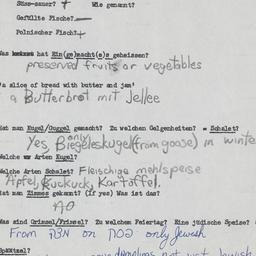 Süss-sauer? + Wie genannt?
Gefüllte Fische? —
Polnischer Fisch? +
Was hat Ein(ge)macht(e)s geheissen?
preserved fruits or vegetables
"a slice of bread with butter and jam"
a Butterbrot mit Jellee
Hat man Kugel/Guggel gemacht? Zu welchen Gelgenheiten? = Schalet?
Yes, only (from goose) in winte
Welche Arten Kugel?
Welche Arten Schalet? Fleischige mehlspeise
Apfel, Kuckuck, Kartoffel.
Hat man Zimmes gekannt? (If yes) Was ist das?
NO
Was sind Grimsel/Frimsel? Zu welchem Feiertag? Eine jüdische Speise?
From on פסח only Jewish
dumplings not Jewish